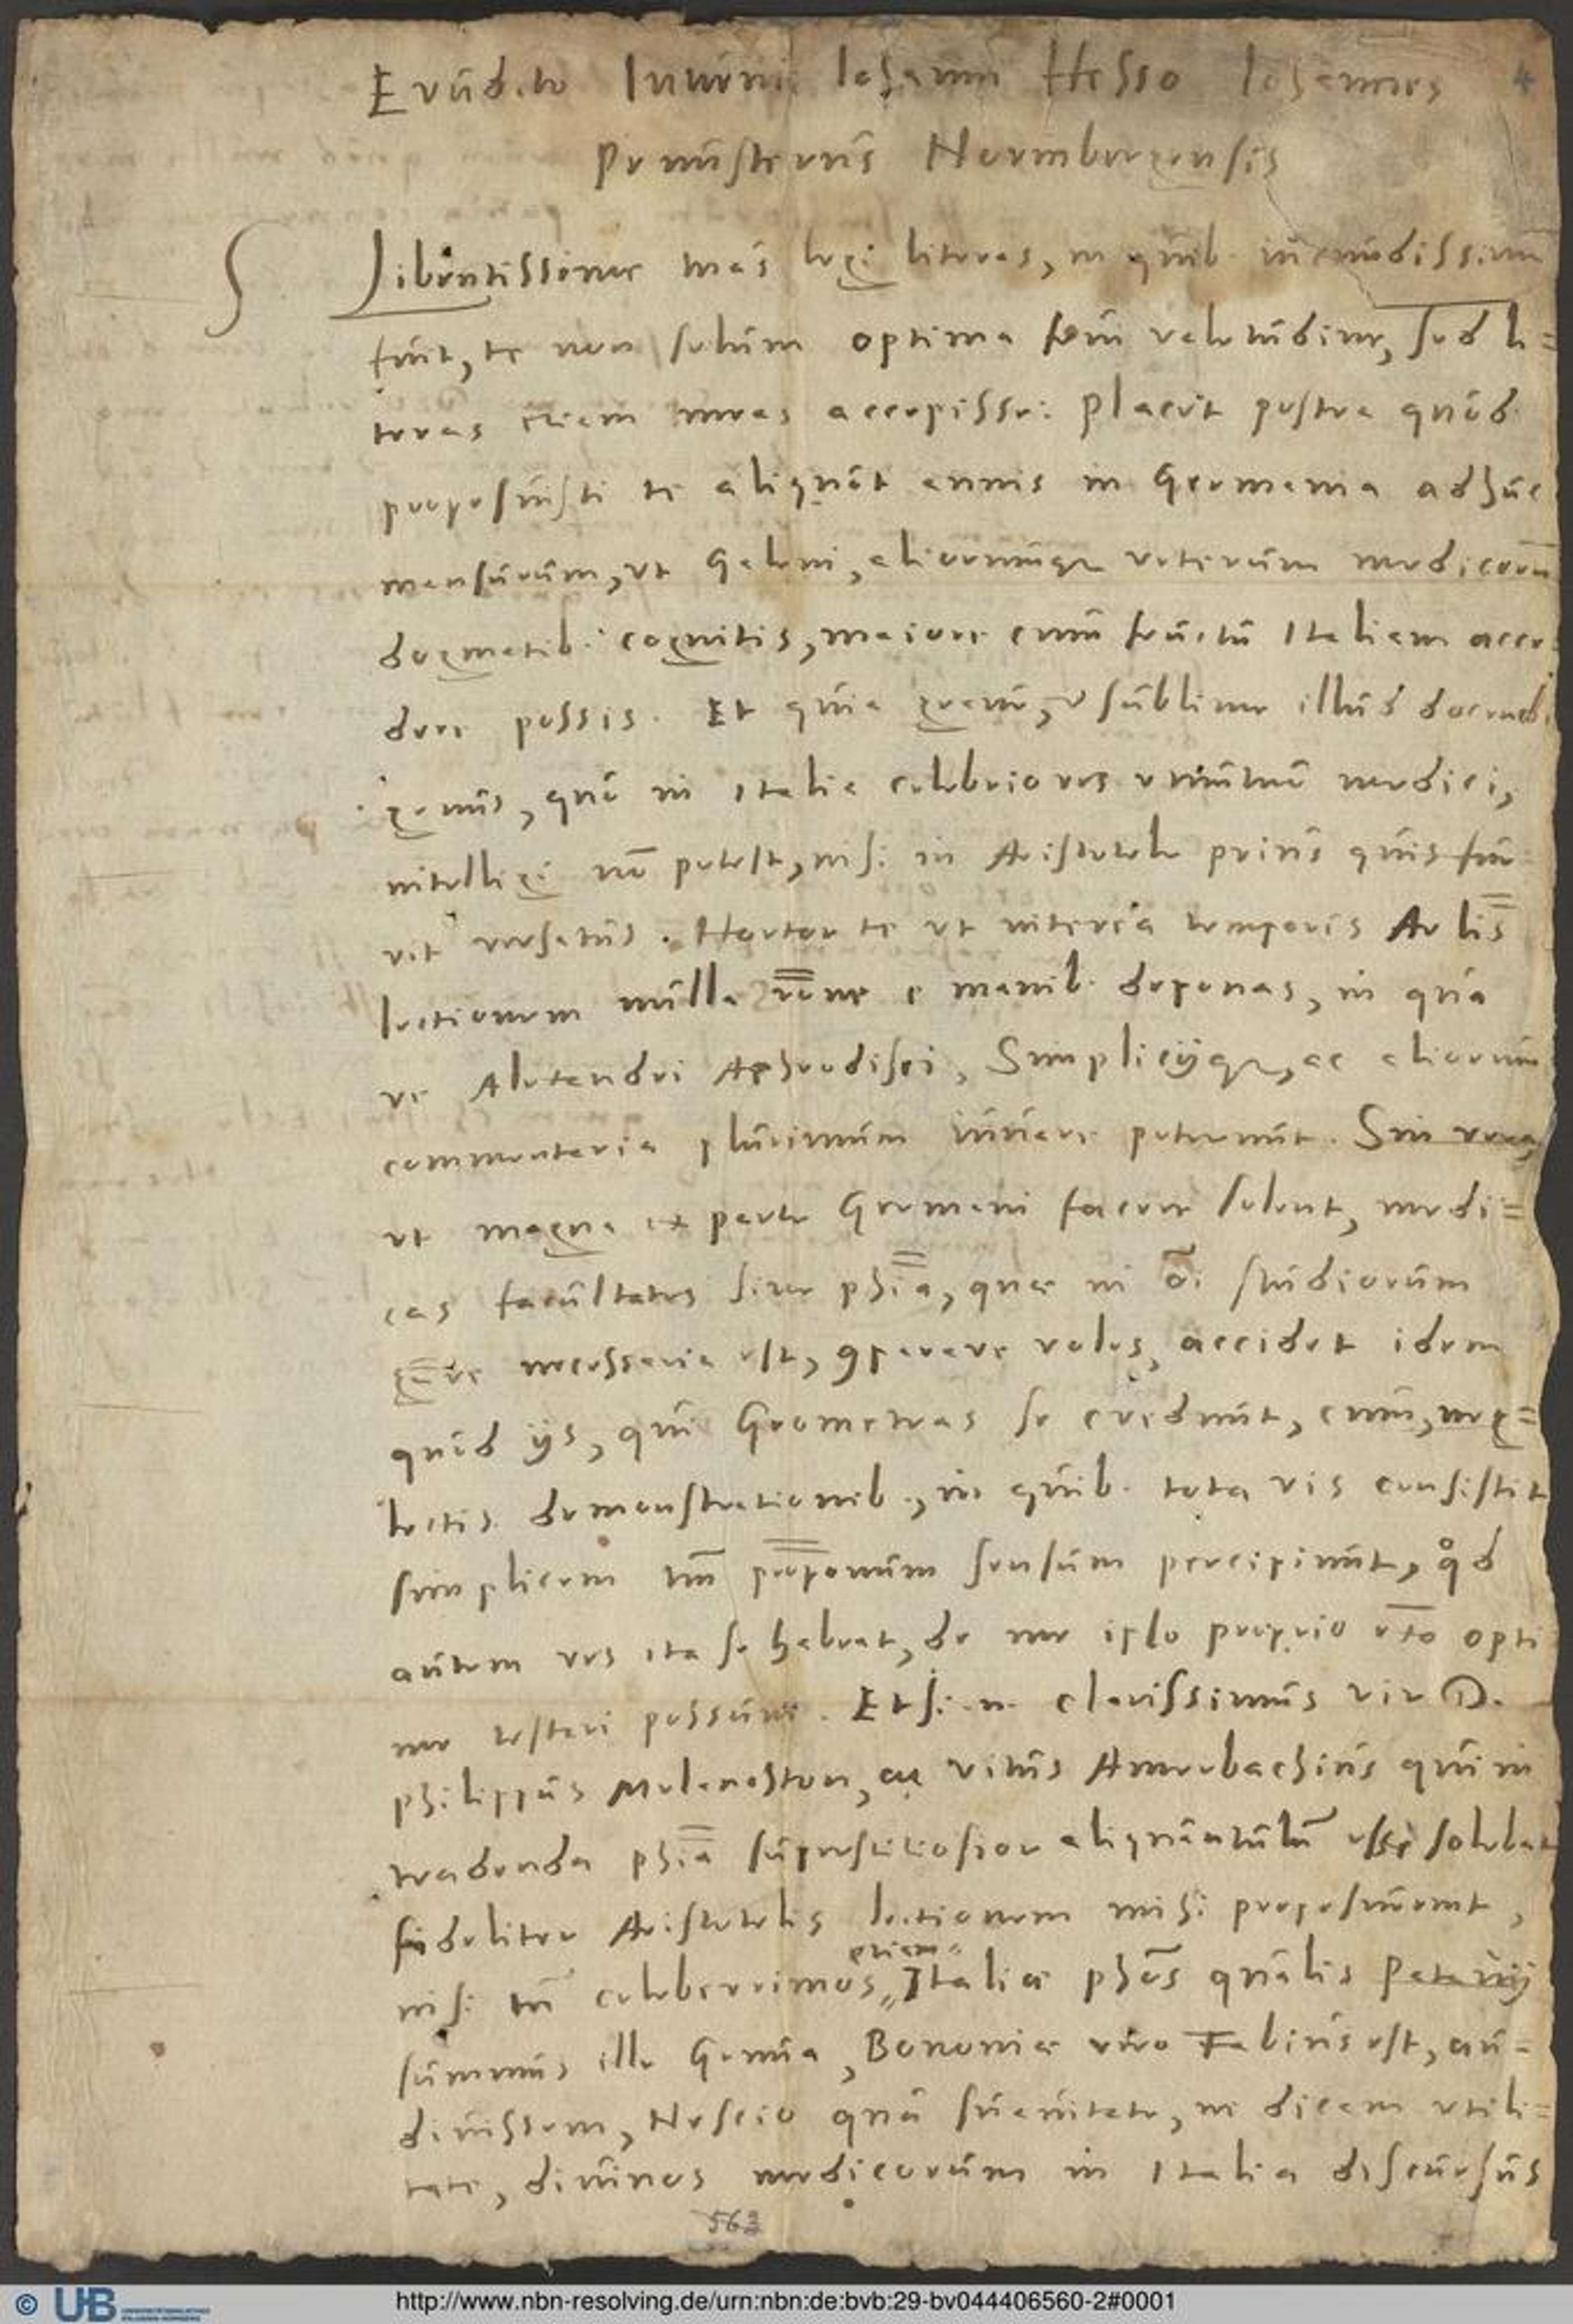 Erudito Iuueni Iohanni Hesso Iohannes 4
Premsterus Normbergensis
S Libentissime tuas legi literas, in quib. iucundissimū
fuit, te non solum optima frui valetudine, sed li=
teras etiam meas accepisse: placet postea quod
proposuisti te aliquot annis in Germania adhuc
mansurum, ut Galeni, aliorumque veterum medicorū
dogmatib. cognitis, maiore cum fructu Italiam acce
dere possis. Et quia graue, et sublime illud docendi
genus, quo in Italia celebriores utuntur medici,
intelligi nō potest, nisi in Aristotele prius quis fue
rit versatus. Hortor te ut interea temporis Arlis
lectionem nulla rōne e manib. deponas, in qua
re Alexandri Aphrodisei, Simplicijque, ac aliorum
commentaria plurimum iuuare poterunt. Sin vero,
ut magna ex parte Germani facere solent, medi=
cas facultates sine phīa, quae in oī studiorum
genere necessaria est, comparare voles, accidet idem
quod ijs, qui Geometras se credunt, cum, neg=
lectis demonstrationib., in quib. tota vis consistit
simplicem tm̄ propōnum sensum percipiunt, qd
autem res ita se habeat, de me ipso proprio exo opti
me testari possum. Etsi .n. clarissimus vir D.
Philippus Melanchton, ac Vitus Amerbachius qui in
tradenda phīa superstitiosior aliquantulū esse solebat
fideliter Aristotelis lectionem mihi proposuerint,
nisi tn̄ celeberrimos etiam Italiae phōs qualis Patauij
summus ille Genua, Bononiae vero Fabius est, au=
diuissem, Nescio qua suauitate, ne dicam utili=
tate, diuinos medicorum in Italia discursus
563
© UB
http://www.nbn-resolving.de/urn:nbn:de:bvb:29-bv044406560-2#0001